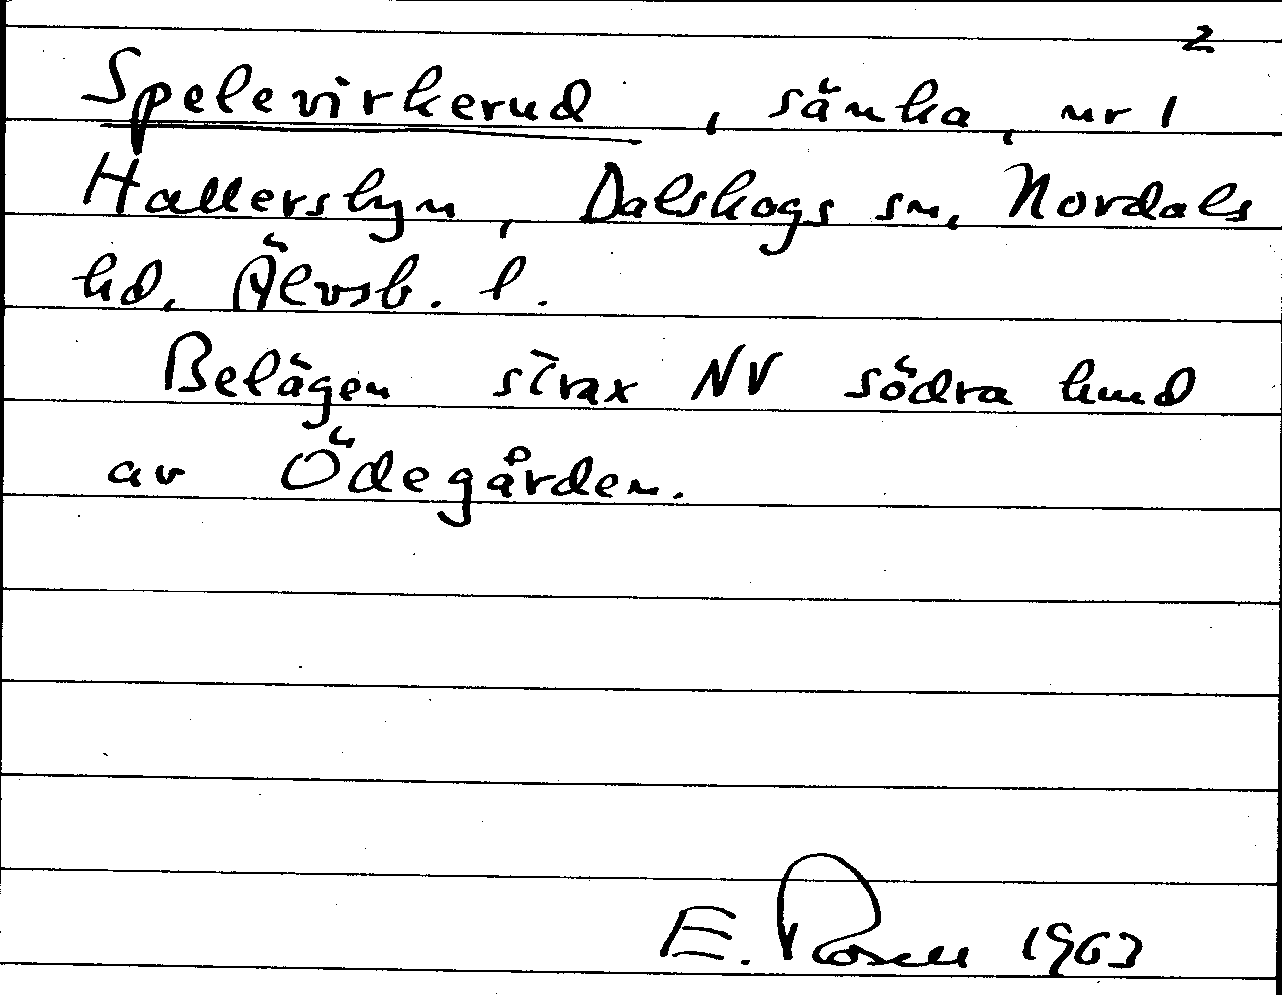 2
Spelevirkerud, sänka, nr 1
Hallersbyn, Dalskogs sn, Nordals
hd, Älvsb. l.
Belägen strax NV södra hmd
av Ödegården.
E. Rosell 1963